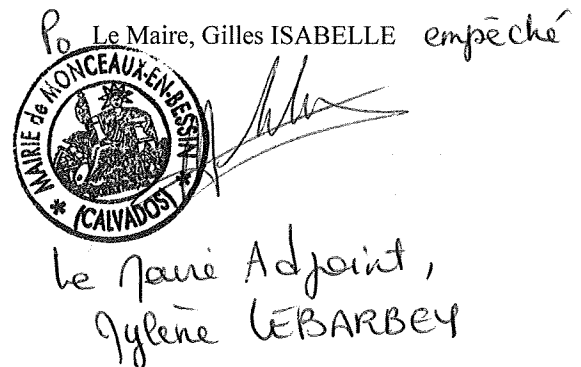 Po Le Maire, Gilles ISABELLE empêché
MAIRIE de MONCEAUX-EN-BESSIN
* (CALVADOS) *
Le Maire Adjoint,
Mylène LEBARBEY